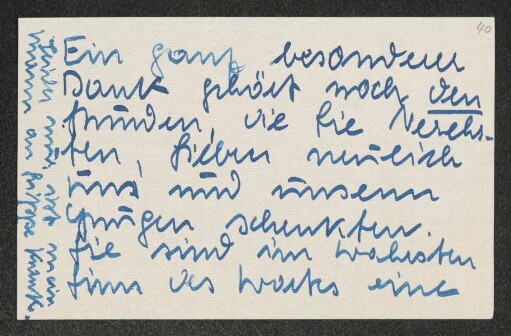 40
Ein ganz besonderer
Dank gehört noch den
Stunden, die Sie Verehr-
ten, Lieben neulich
uns und unseren
Jungen schenkten.
Sie sind im wahrsten
Sinn des Wortes eine
mein
an Grippe krank.